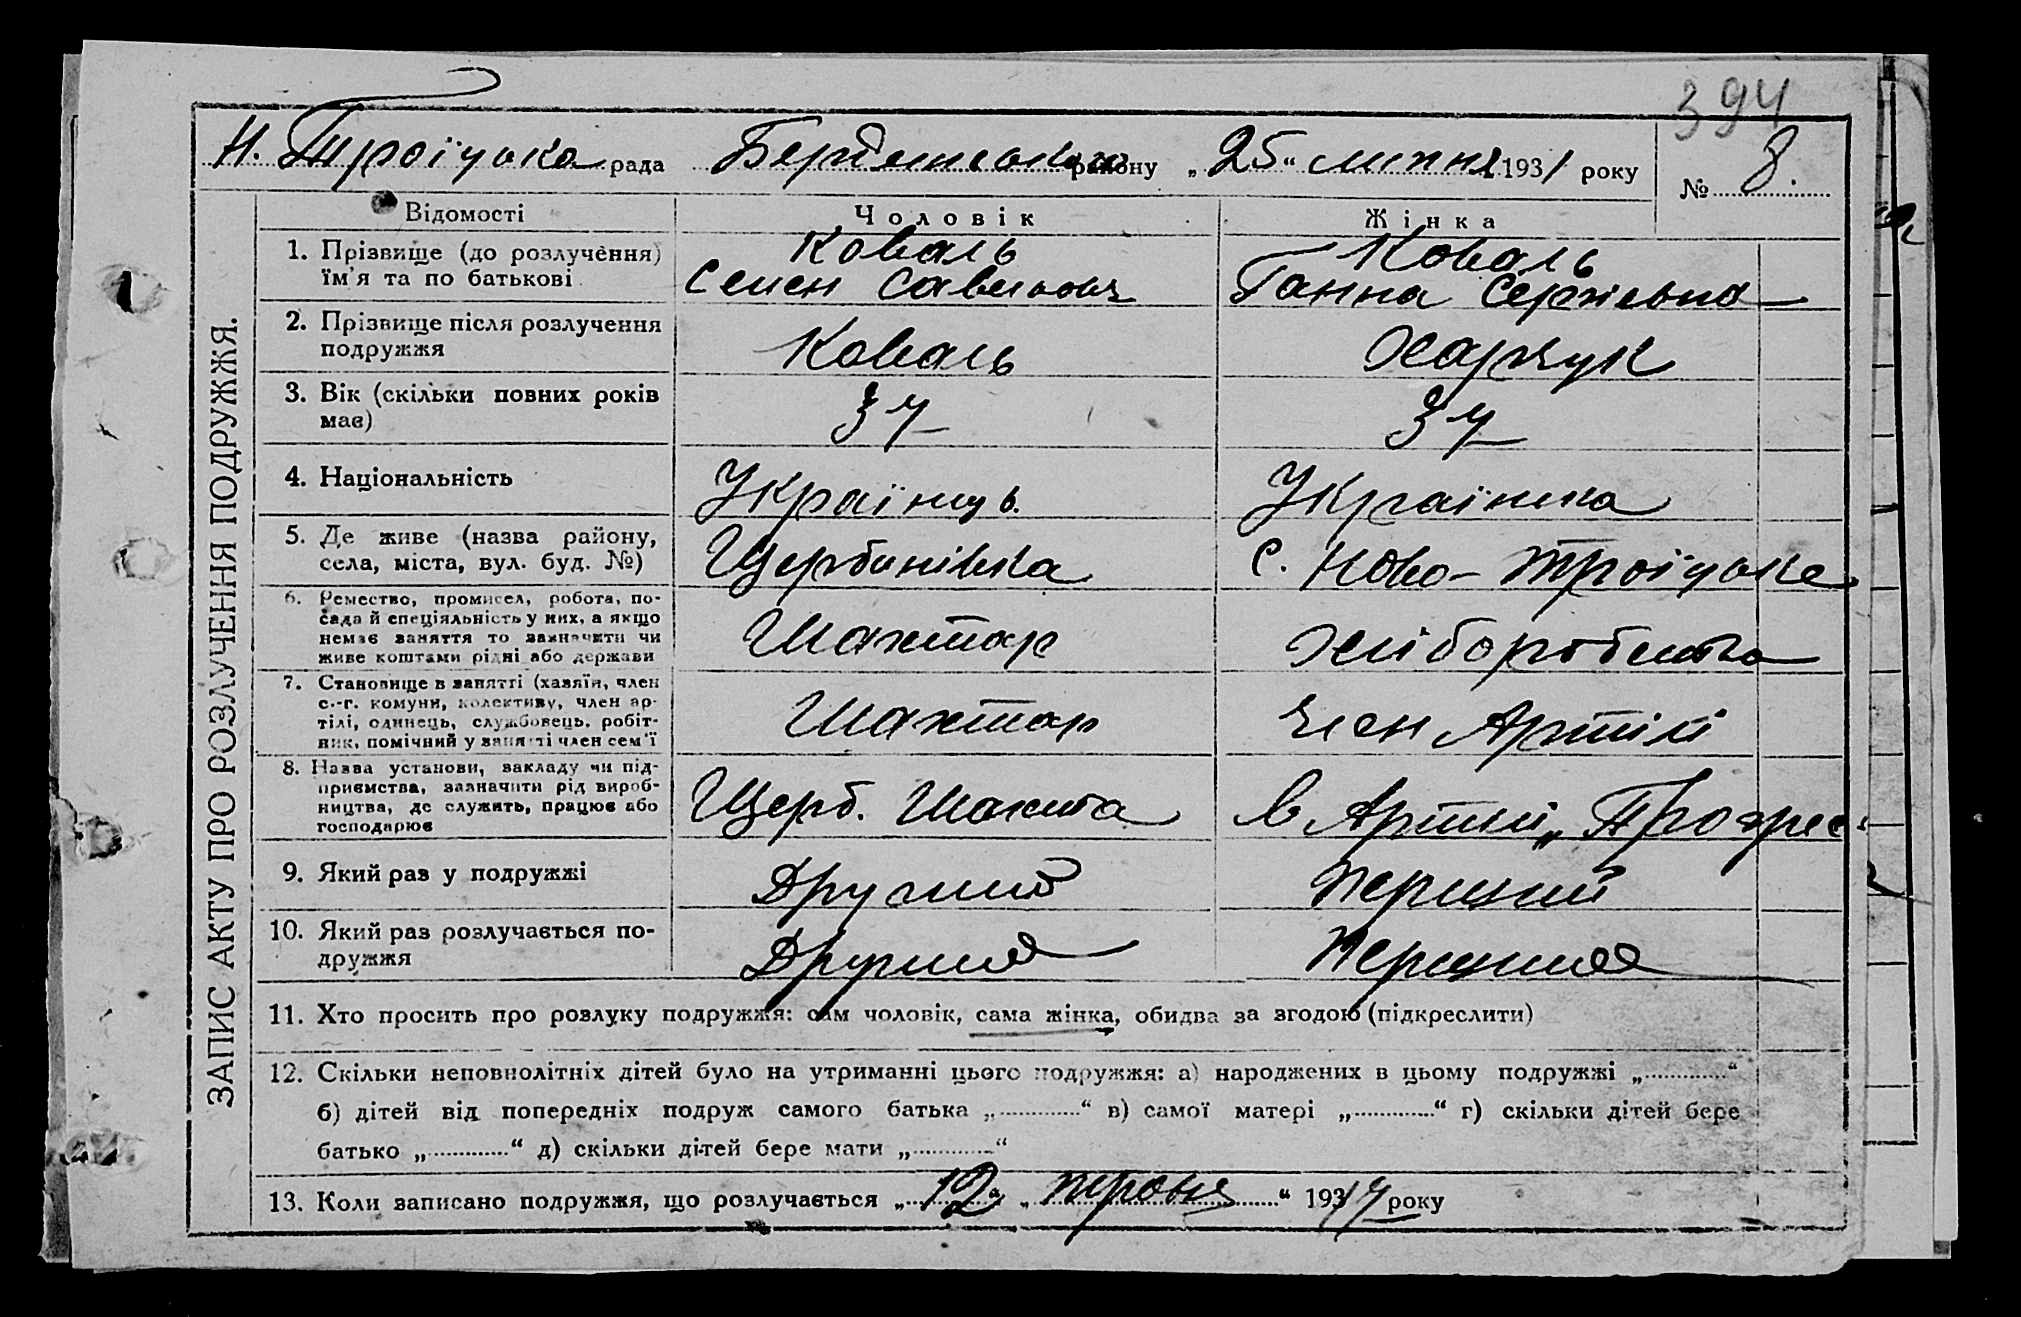 394
Н. Троїцька рада Бердянського району „25“ липня 1931 року
№ 8.
ЗАПИС АКТУ ПРО РОЗЛУЧЕННЯ ПОДРУЖЖЯ.
Відомості Чоловік Жінка
1. Прізвище (до розлучення) Коваль Коваль
їм'я та по батькові Семен Савельович Ганна Сергіевна
2. Прізвище після розлучення
подружжя Коваль Харчук
3. Вік (скільки повних років
має) 37 37
4. Національність Українець. Українка
5. Де живе (назва району,
села, міста, вул. буд. №) Щербинівка С. Ново-Троїцьке
6. Ремество, промисел, робота, по-
сада й спеціяльність у них, а якщо
немає заняття то зазначити чи
живе коштами рідні або держави
Шахтар Хліборобство
7. Становище в занятті (хазяїн, член
с.-г. комуни, колективу, член ар-
тілі, одинець, службовець, робіт-
ник, помічний у занятті член сем'ї
Шахтар Член Артілі
8. Назва установи, закладу чи під-
приємства, зазначити рід вироб-
ництва, де служить, працює або
господарює
Щерб. Шахта в Артілі „Прогрес“
9. Який раз у подружжі Другий Перший
10. Який раз розлучається по-
дружжя Другий Перший
11. Хто просить про розлуку подружжя: сам чоловік, сама жінка, обидва за згодою (підкреслити)
12. Скільки неповнолітніх дітей було на утриманні цього подружжя: а) народжених в цьому подружжі „............“
б) дітей від попередніх подруж самого батька „............“ в) самої матері „............“ г) скільки дітей бере
батько „............“ д) скільки дітей бере мати „............“
13. Коли записано подружжя, що розлучається „12“ „ “ року